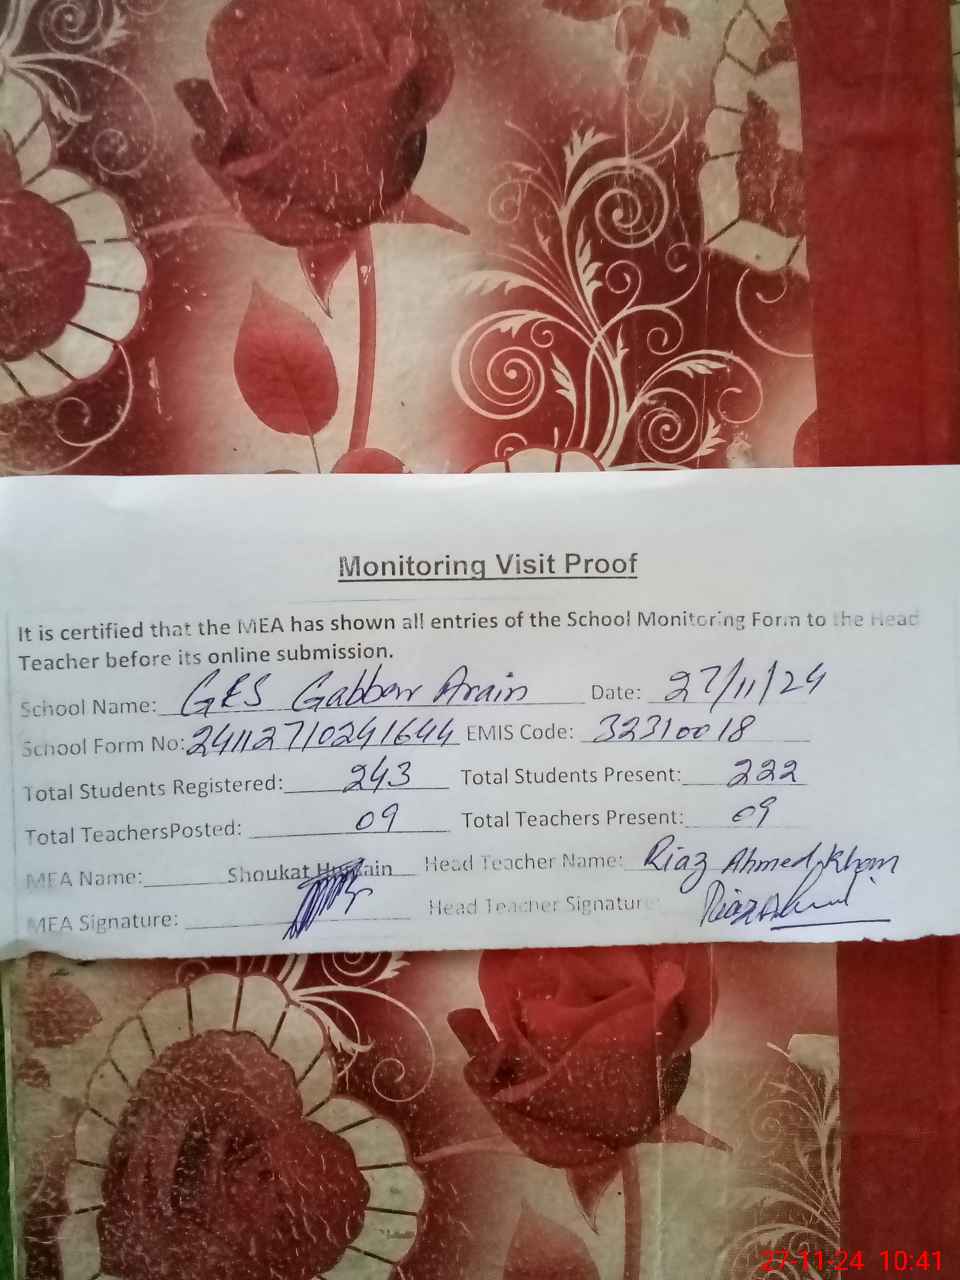 Monitoring Visit Proof
It is certified that the MEA has shown all entries of the School Monitoring Form to the Head
Teacher before its online submission.
School Name: GES Gabbar Arain Date: 27/11/24
School Form No: 24112710241644 EMIS Code: 32310018
Total Students Registered: 243 Total Students Present: 222
Total TeachersPosted: 09 Total Teachers Present: 09
MEA Name: Shoukat Hussain Head Teacher Name: Riaz Ahmed Khan
MEA Signature: Head Teacher Signature: Riaz Ahmed
27-11-24 10:41